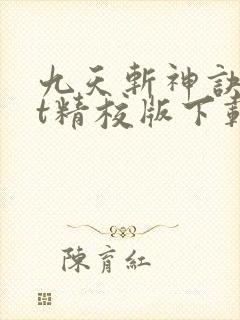 九天斬神訣
t精校版下載
陳育紅